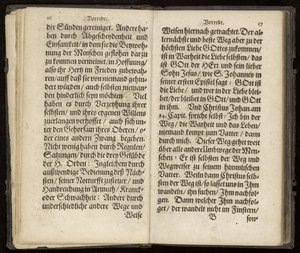 16 Vorrede.
der Sünden gereiniget. Andere ha-
ben durch Abgeschiedenheit und
Einsamkeit/ in dem sie die Beywoh-
nung der Menschen geflohen darzu
zu kommen vermeinet/ in Hoffnung/
also ihr Hertz in Frieden zubewah-
ren/ auff daß sie von niemand gehin-
dert würden/ auch selbsten niemand
den hinderlich seyn möchten. Viel
haben es durch Verzeyhung ihrer
selbsten/ und ihres eygenen Willens
zuerlangen verhoffet/ auch sich un-
ter den Gehorsam ihres Oberen/ o-
der eines andern Zwang begeben.
Nicht wenig haben durch Regulen/
Satzungen/ durch die drey Gelübde
der H. Orden: Ingleichem durch
außwendige Bedienung deß Näch-
sten/ seiner Notturfft zusteuer/ und
Handreichung in Armuth/ Kranck-
oder Schwachheit: Andere durch
unterschiedliche andere Wege und
Weise
Vorrede. 17
Weisen hiernach getrachtet. Der al-
lernächste und beste Weg aber zu der
höchsten Liebe Gottes zukommen/
ist in Warheit die Liebe selbsten/ das
ist GOtt der HErr und sein lieber
Sohn Jesus/ wie S. Johannes in
seiner ersten Epistel saget: GOtt ist
die Liebe/ und wer in der Liebe blei-
bet/ der bleibet in GOtt/ und GOtt
in ihm. Und Christus Johan. am
14. Capit. spricht selbst: Ich bin der
Weg/ die Warheit und das Leben/
niemand kompt zum Vatter/ dann
durch mich. Dieser Weg gehet weit
über alle andere Ubungen der Men-
schen: Er ist selbsten der Weg und
Wegweiser zu seinem himmlischen
Vatter. Weiln dann Christus selb-
sten der Weg ist/ so lasset uns in Jhm
wandeln/ ihn suchen/ Jhm nachfol-
gen. Dann welcher Jhm nachfol-
get/ der wandelt nicht im Finstern/
B son-